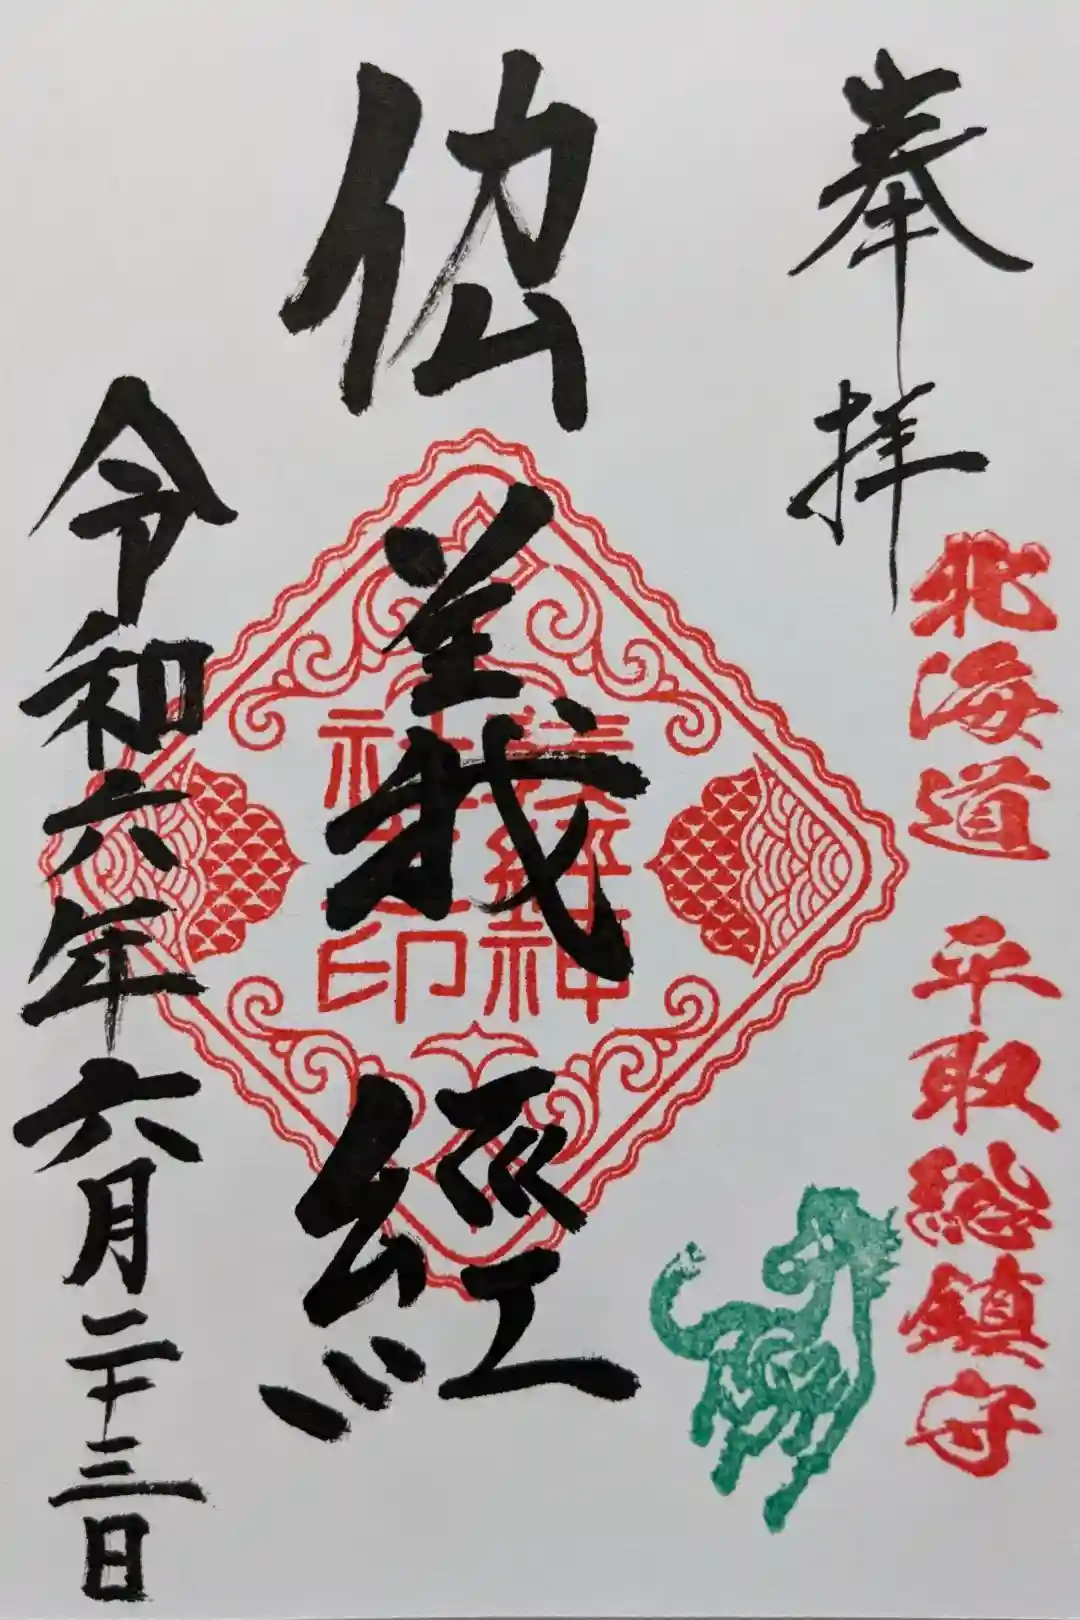 奉拝
北海道 平取総鎮守
義經
義經神
社之印
令和六年六月二十三日